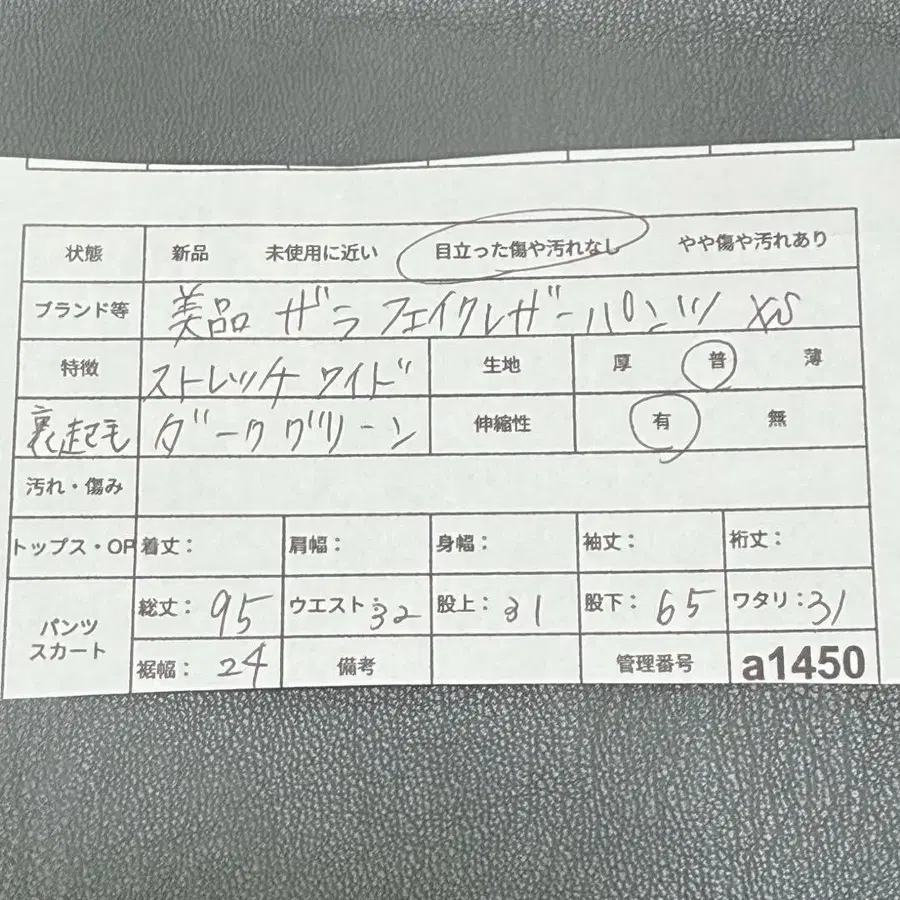 状態 新品 未使用に近い 目立った傷や汚れなし やや傷や汚れあり
ブランド等 美品 ザラ フェイクレザーパンツ XS
特徴 ストレッチ ワイド 生地 厚 普 薄
裏起毛 ダークグリーン 伸縮性 有 無
汚れ・傷み
トップス・OP 着丈: 肩幅: 身幅: 袖丈: 裄丈:
パンツ スカート 総丈: 95 ウエスト: 32 股上: 31 股下: 65 ワタリ: 31
裾幅: 24 備考 管理番号 a1450